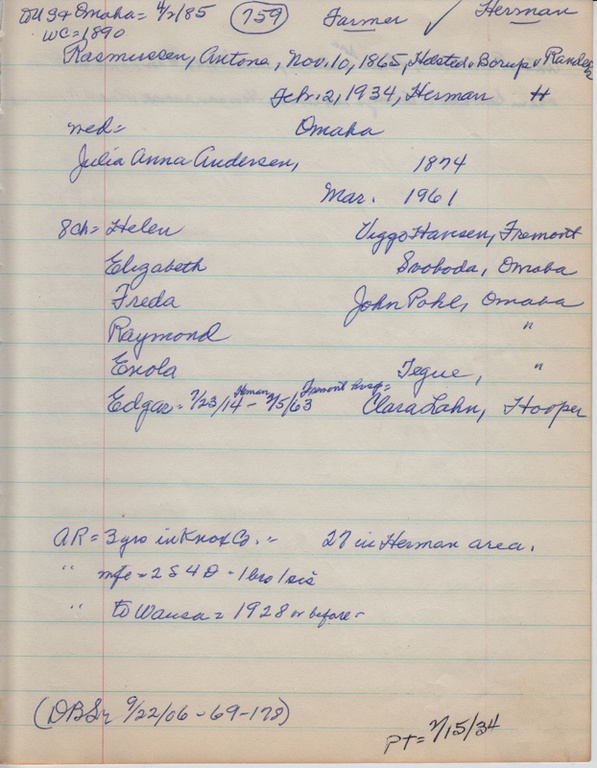 DU 9+ Omaha = 4/2/85 (759) Farmer ✓ Herman
WC = 1890
Rasmussen, Antone, Nov. 10, 1865, Holsted v Borup v Randers
Feb. 2, 1934, Herman H
med = Omaha
Julia Anna Andersen, 1874
Mar. 1961
8 ch = Helen Viggo Hansen, Fremont
Elizabeth Svoboda, Omaha
Freda John Pohl, Omaha
Raymond "
Enola Tegue, "
Herman Fremont hosp =
Edgar = 7/23/14 - 3/5/63 Clara Lahn, Hooper
AR = 3 yro in Knox Co. = 27 in Herman area.
" mfe = 2 S 4 D - 1 bro 1 sis
" to Wausa = 1928 or before -
(DBSr 9/22/06 - 69 - 178)
PT = 2/15/34